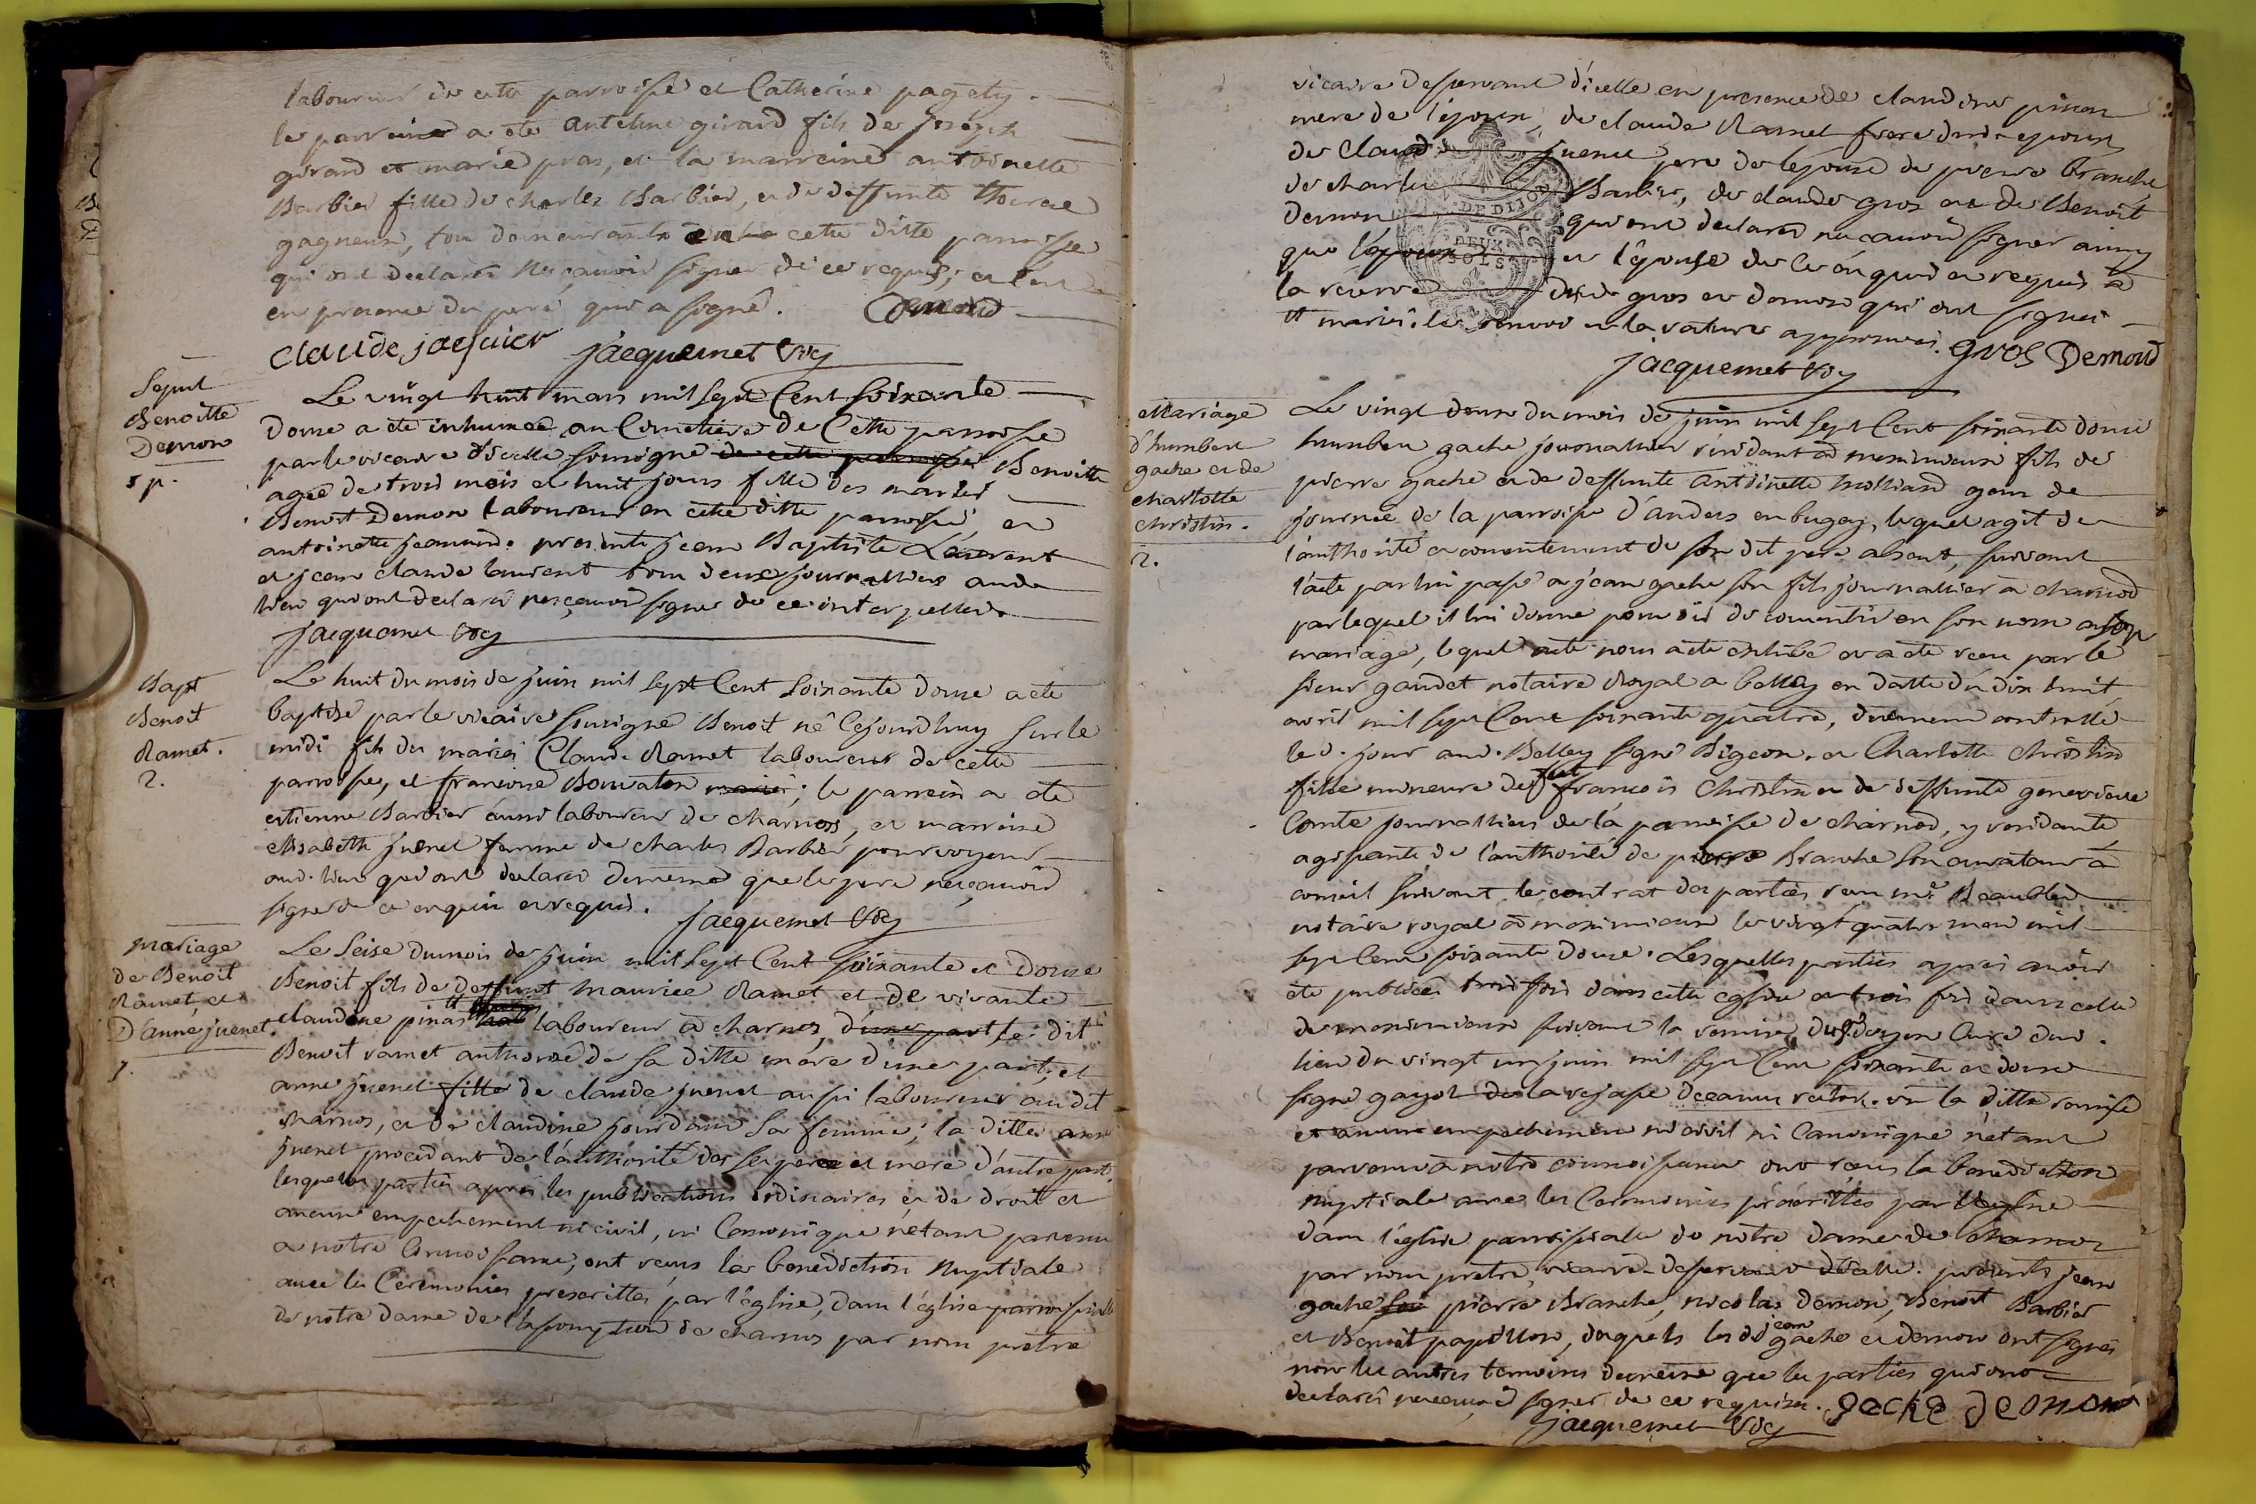 laboureur de cette parroisse et Catherine pagety.
le parrein a ete antelme girard fils de joseph
girard et marie pras, et la marreine antoinette
Barbier fille de charles Barbier, et de deffunte
gagneur, tous demeurants cette ditte parroisse
qui ont declarés ne sçavoir signer de ce requis, et l'ont
en presence du pere qui a signé. Demond
claude jacquier jacquemet vic
Sepult
Benoitte
Demon
Le vingt huit mars mil sept Cent soixante
douze a été inhumée au Cimetiere de Cette parroisse
par le vicaire d'icelle soussigné de cette parroisse Benoitte
agée de trois mois et huit jours fille des mariés
Benoit Demon laboureur en cette ditte parroisse, et
antoinette presents jean Baptiste Laurent
et jean claude laurent tous deux journalliers audit
lieu qui ont declaré ne sçavoir signer de ce interpellés.
jacquemet vic
Bapt
Benoit
Ramet.
2.
Le huit du mois de juin mil sept Cent soixante douze a été
baptisé par le vicaire soussigné Benoit né Cejourdhuy sur le
midi fils des mariés Claude Ramet laboureur de cette
parroisse, et françoise Bouvalon mariés; le parrein a été
etienne Barbier aussi laboureur de charnos, et marreine
elisabeth juenet femme de charles Barbier pourvoyeur
aud. lieu qui ont declarés de meme que le pere ne sçavoir
signer de ce enquis et requis. jacquemet vic
mariage
de Benoit
Ramet, et
D'anne juenet.
Le seise du mois de juin mil sept Cent soixante et douze
Benoit fils de deffunt maurice Ramet et de vivante
claudine pinas laboureur à charnos, d'une part le dit
Benoit ramet authorisé de sa ditte mère d'une part, et
anne juenet fille de claude juenet aussi laboureur audit
charnos, et de claudine jourdain sa femme, la ditte anne
juenet procedant de l'authorité des ses pere et mere, d'autre part,
lesquelles parties après les publications ordinaires et de droit et
aucun empechement ni civil, ni Canonique n'etant parvenu
a notre Connoissance, ont reçus la benediction Nuptiale
avec les Ceremonies prescrittes par l'église, dans l'église parroissiale
de notre dame de l'assomption de charnos par nous prêtre
vicaire desservant d'icelle en presence de claudine pinas
mere de l'epoux, de claude Ramet frere dud. epoux
de claude juenet pere de l'epouse de pierre branche
de charles Barbier, de claude gros et de Benoit
demon qui ont declarés ne sçavoir signer ainsy
que l'epoux et l'épouse de ce enquis et requis à
la reserve desd. gros et demon qui ont signés
et mariés, le renvoi et la rature approuvés. gros Demond
jacquemet vic
Mariage
d'humbert
gache et de
charlotte
christin.
2.
Le vingt deux du mois de juin mil sept Cent soixante douze
humbert gache journallier résidant à meximieux fils de
pierre gache et de deffunte antoinette molliard gens de
journée de la parroisse d'anders en bugey, lequel agit de
l'authorité et consentement de son dit pere absent, suivant
l'acte par lui passé a jean gache son fils journallier à charnod
par lequel il lui donne pouvoir de consentir en son nom audit
mariage, lequel acte nous a été exhibé et a été reçu par le
sieur gaudet notaire Royal a belley en datte du dix huit
avril mil sept Cent soixante quatre, duement controllé
led. jour aud. Belley signé Bigeon. et Charlotte Christin
fille mineure de feu françois Christin et de deffunte genevieve
Comte journalliers de la parroisse de charnod, y residante
agissante de l'authorité de pierre Branche son curateur à
conseil suivant le contrat des parties reçu me Beaublez
notaire royal à meximieux le vingt quatre may mil
sept Cent soixante douze. Lesquelles parties après avoir
été publiées trois fois dans cette eglise et trois fois dans celle
de meximieux suivant la remise du sr doyen Curé dud.
lieu du vingt un juin mil sept Cent soixante et douze
signé gayot de la rejasse doyen curé. vu la ditte remise
et aucun empechement ni civil ni Canonique n'étant
parvenu à notre connoissance ont reçus la benediction
nuptiale avec les Ceremonies préscrittes par l'église
dans l'église parroissiale de notre dame de charnoz
par nous prêtre, vicaire desservant d'icelle. presents jean
gache pierre Branche, nicolas demon, Benoit Barbier
et Benoit papillon, desquels les dd jean gache et demon ont signés
non les autres temoins de meme que les parties qui ont
declarés ne sçavoir signer de ce requises. gache demon
jacquemet vic
DE DIJON
DEUX
SOLS